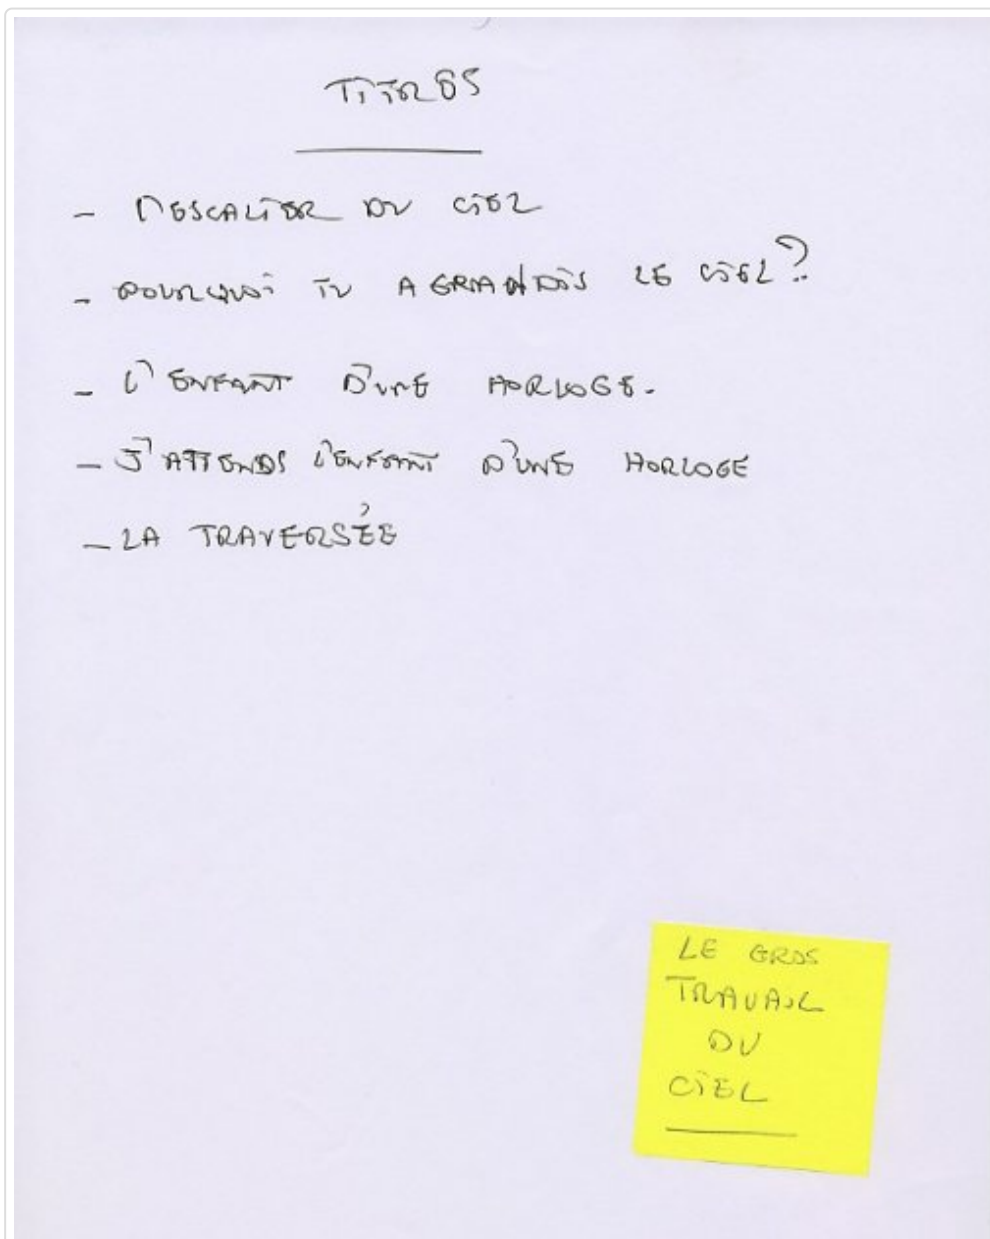 TITRES
- L'ESCALIER DU CIEL
- POURQUOI TU AGRANDIS LE CIEL ?
- L'ENFANT D'UNE HORLOGE.
- J'ATTENDS L'ENFANT D'UNE HORLOGE
- LA TRAVERSÉE
LE GROS
TRAVAIL
DU
CIEL